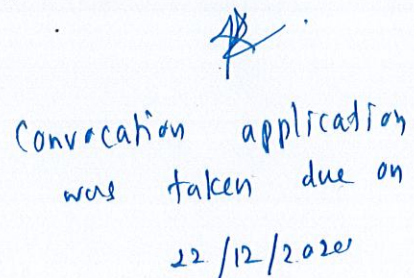 Convocation application
was taken due on
22/12/2020